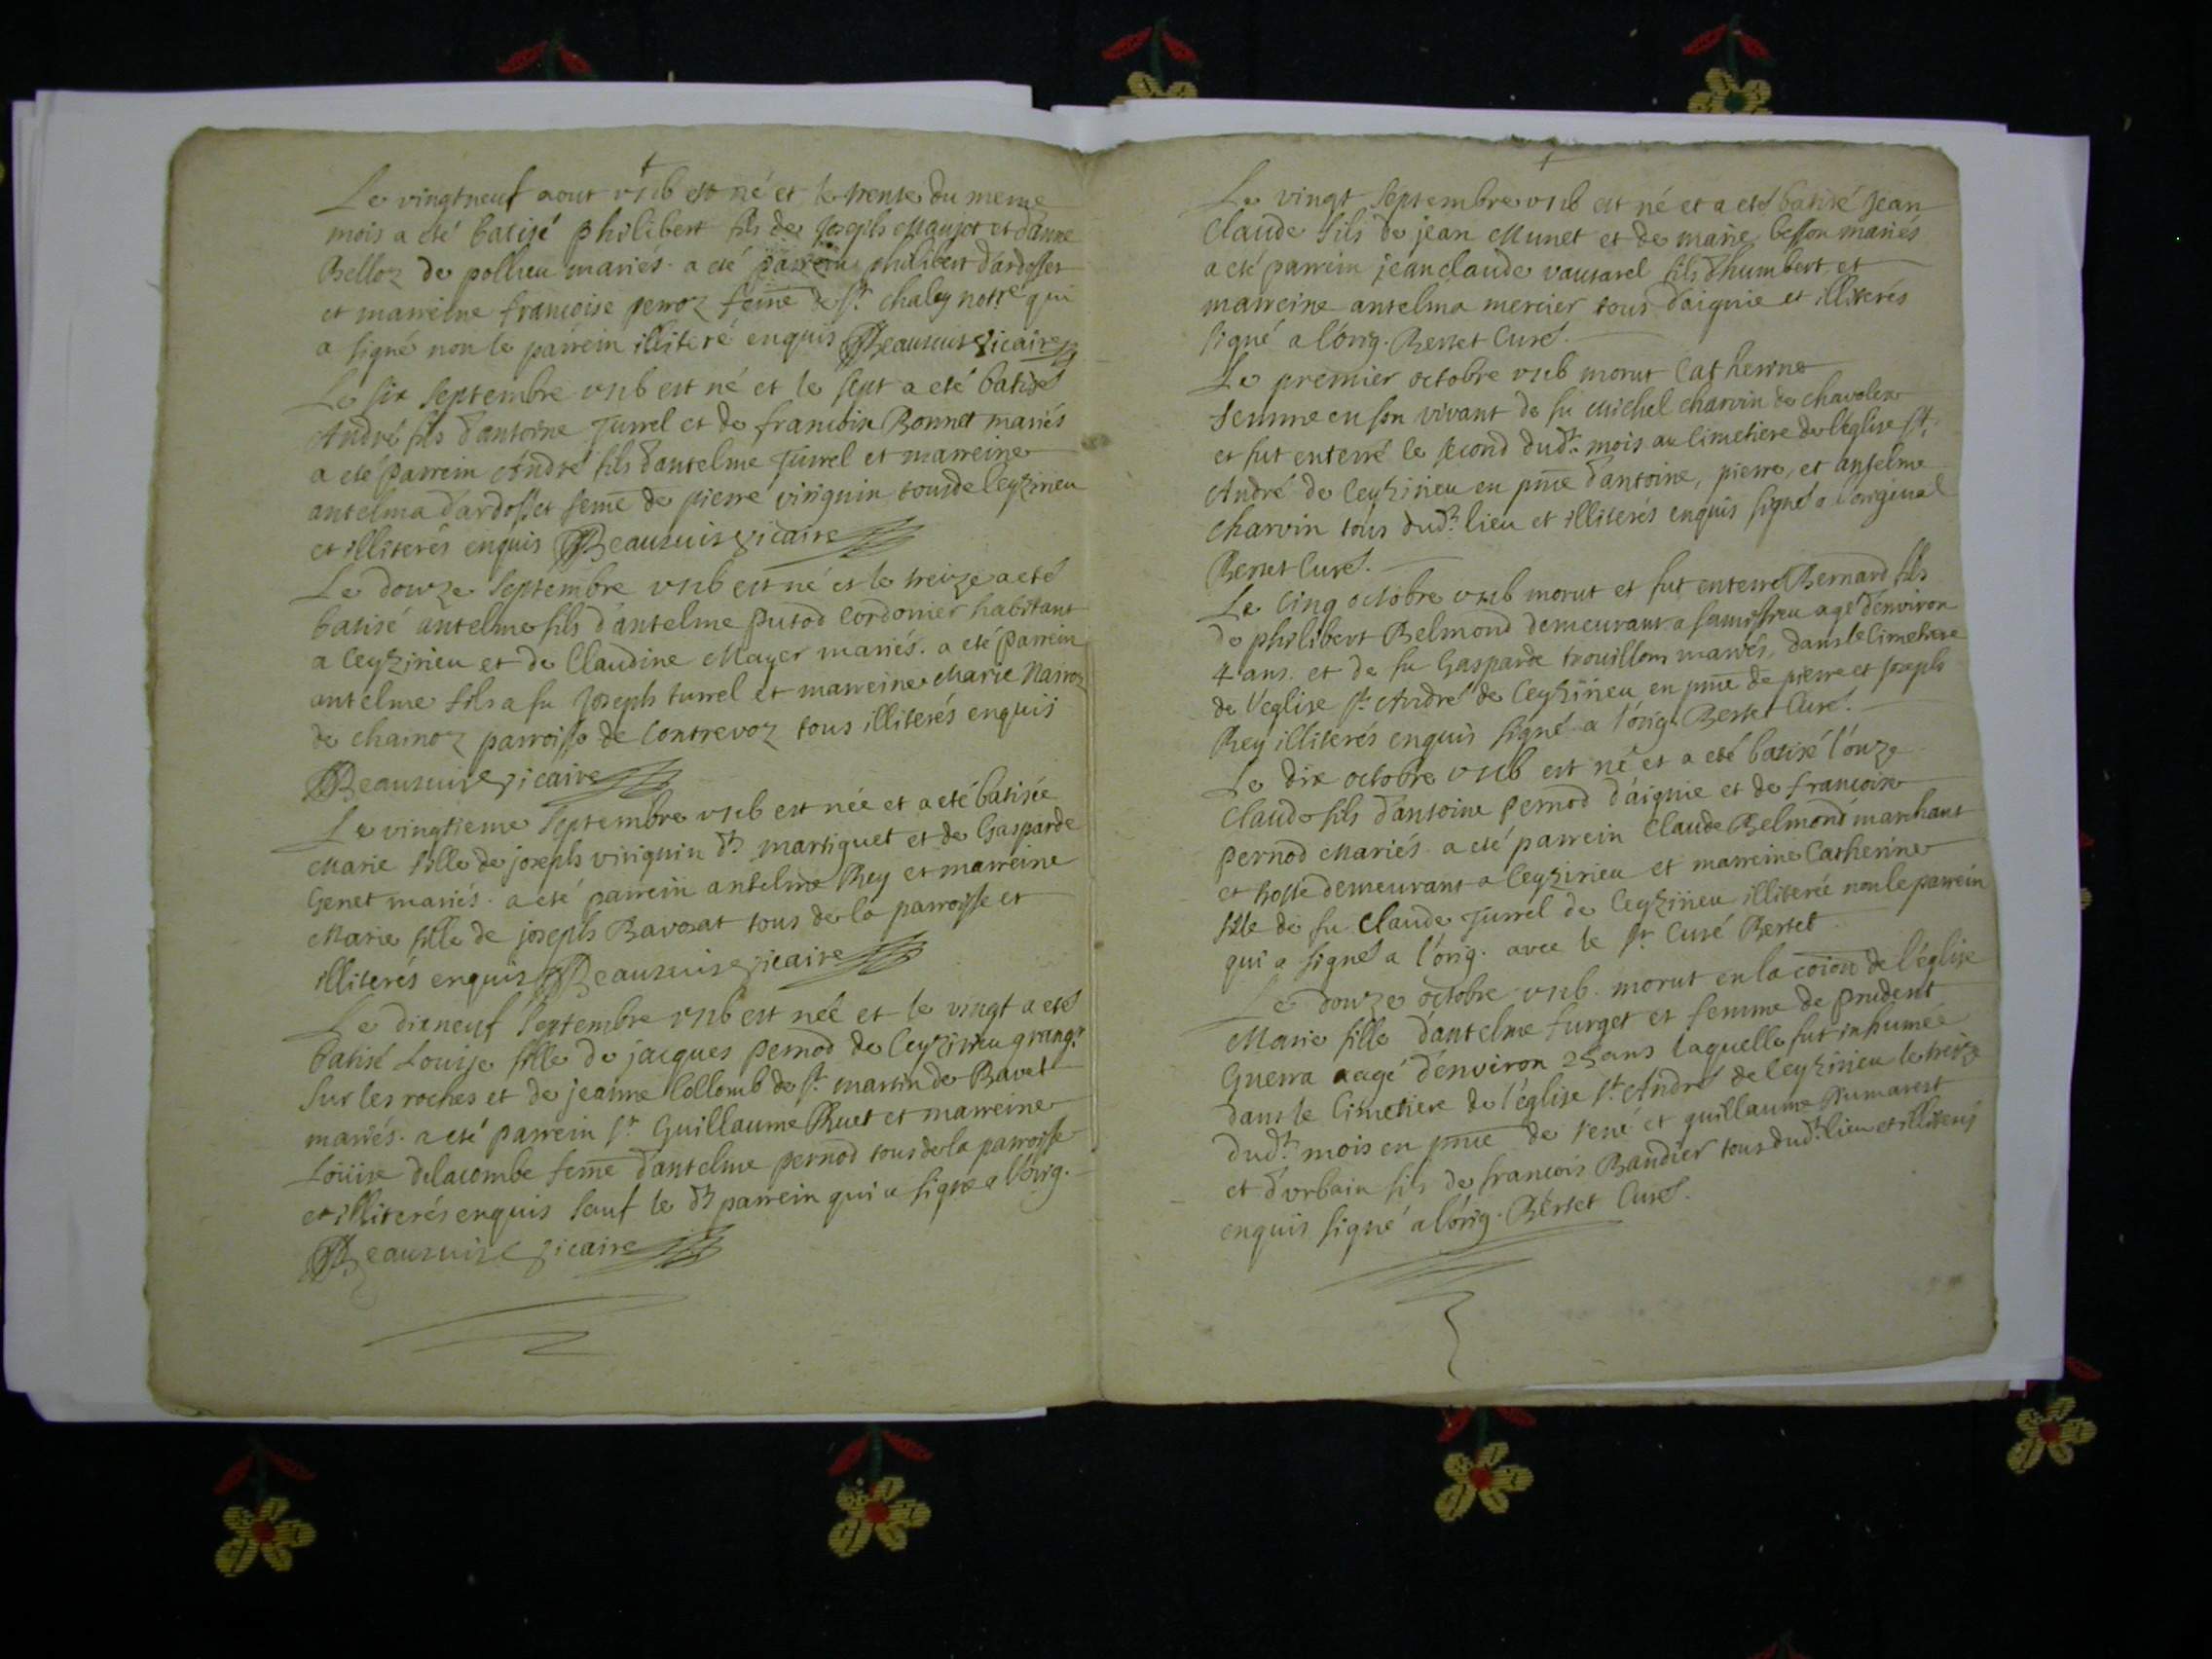 Le vingtneuf aout est né et le trente du meme
mois a eté batisé philibert fils de Joseph Maujot et d'anne
Belloz de pollieu mariés. a eté parrein philibert d'ardosset
et marreine francoise perroz feme de Sr. chaley notre qui
a signé non le parrein illiteré enquis Beauruis vicaire
Le six septembre est né et le sept a eté batisé
André fils d'antoine Jurrel et de francoise Bonnet mariés
a eté parrein André fils d'antelme Jurrel et marreine
antelma d'ardosset feme de pierre viriguin tous de Ceyzirieu
et illiterés enquis Beauruis vicaire
Le douze septembre est né et le treize a eté
batisé antelme fils d'antelme putod Cordonier habitant
a Ceyzirieu et de Claudine Mayer mariés. a eté parrein
antelme fils a fu Joseph turrel et marreine Marie
de charnoz parroisse de Contrevoz tous illiterés enquis
Beauruis vicaire
Le vingtieme septembre est née et a eté batisée
Marie fille de joseph viriguin dt martiguet et de Gasparde
Genet mariés. a eté parrein antelme Rey et marreine
Marie fille de joseph Bavozat tous de la parroisse et
illiterés enquis Beauruis vicaire
Le dixneuf septembre est née et le vingt a eté
batisé Louise fille de jacques pernod de Ceyzirieu grangr.
sur les roches et de jeanne Collomb de St. martin de Bavel
mariés. a eté parrein Sr. Guillaume Ruet et marreine
Loüise delacombe feme d'antelme pernod tous de la parroisse
et illiterés enquis sauf le dt parrein qui a signé a l'orig.
Beauruis vicaire
Le vingt septembre est né et a eté batisé Jean
Claude fils de jean Munet et de marie besson mariés
a eté parrein jean claude vautarel fils d'humbert et
marreine antelma mercier tous d'aignie et illiterés
signé a l'orig. Bertet Curé.
Le premier octobre morut Catherine
femme en son vivant de fu Michel charvin de chavolex
et fut enterré le second dudt. mois au Cimetiere de l'église St.
André de Ceyzirieu en pnce d'antoine, pierre, et anselme
charvin tous dudt. lieu et illiterés enquis signé a l'original
Bertet Curé.
Le Cinq octobre morut et fut enterré Bernard fils
de philibert Belmond demeurant a agé d'environ
4 ans. et de fu Gasparde trouillon mariés, dans le Cimetiere
de l'eglise St. André de Ceyzirieu en pnce de pierre et Joseph
Rey illiterés enquis signé a l'orig. Bertet Curé.
Le dix octobre est né et a eté batisé l'onze
Claude fils d'antoine pernod d'aignie et de francoise
pernod Mariés a eté parrein Claude Belmond marchant
et hoste demeurant a Ceyzirieu et marreine Catherine
fille de fu Claude Jurrel de Ceyzirieu illiterée non le parrein
qui a signé a l'orig. avec le Sr. Curé Bertet
Le douze octobre morut en la coion de l'église
Marie fille d'antelme furget et femme de prudent
Guerra aagé d'environ 25 ans laquelle fut inhumée
dans le Cimetiere de l'église St. André de Ceyzirieu le treize
dudt. mois en pnce de rené et guillaume Dumarest
et d'urbain fils de francois Bandier tous dudt. lieu et illiterés
enquis signé a l'orig. Bertet Curé.